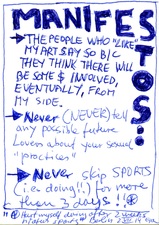 MANIFESTOS:
→THE PEOPLE WHO "LIKE"
MY ART SAY SO B/C
THEY THINK THERE WILL
BE SOME $ INVOLVED,
EVENTUALLY, FROM
MY SIDE.
→Never (NEVER) tell
any possible future
Lovers about your sexual
"practices"
→Never skip SPORTS
(i.e. doing!!) for more
than 3 days!!
Hurt myself doing after 2 weeks